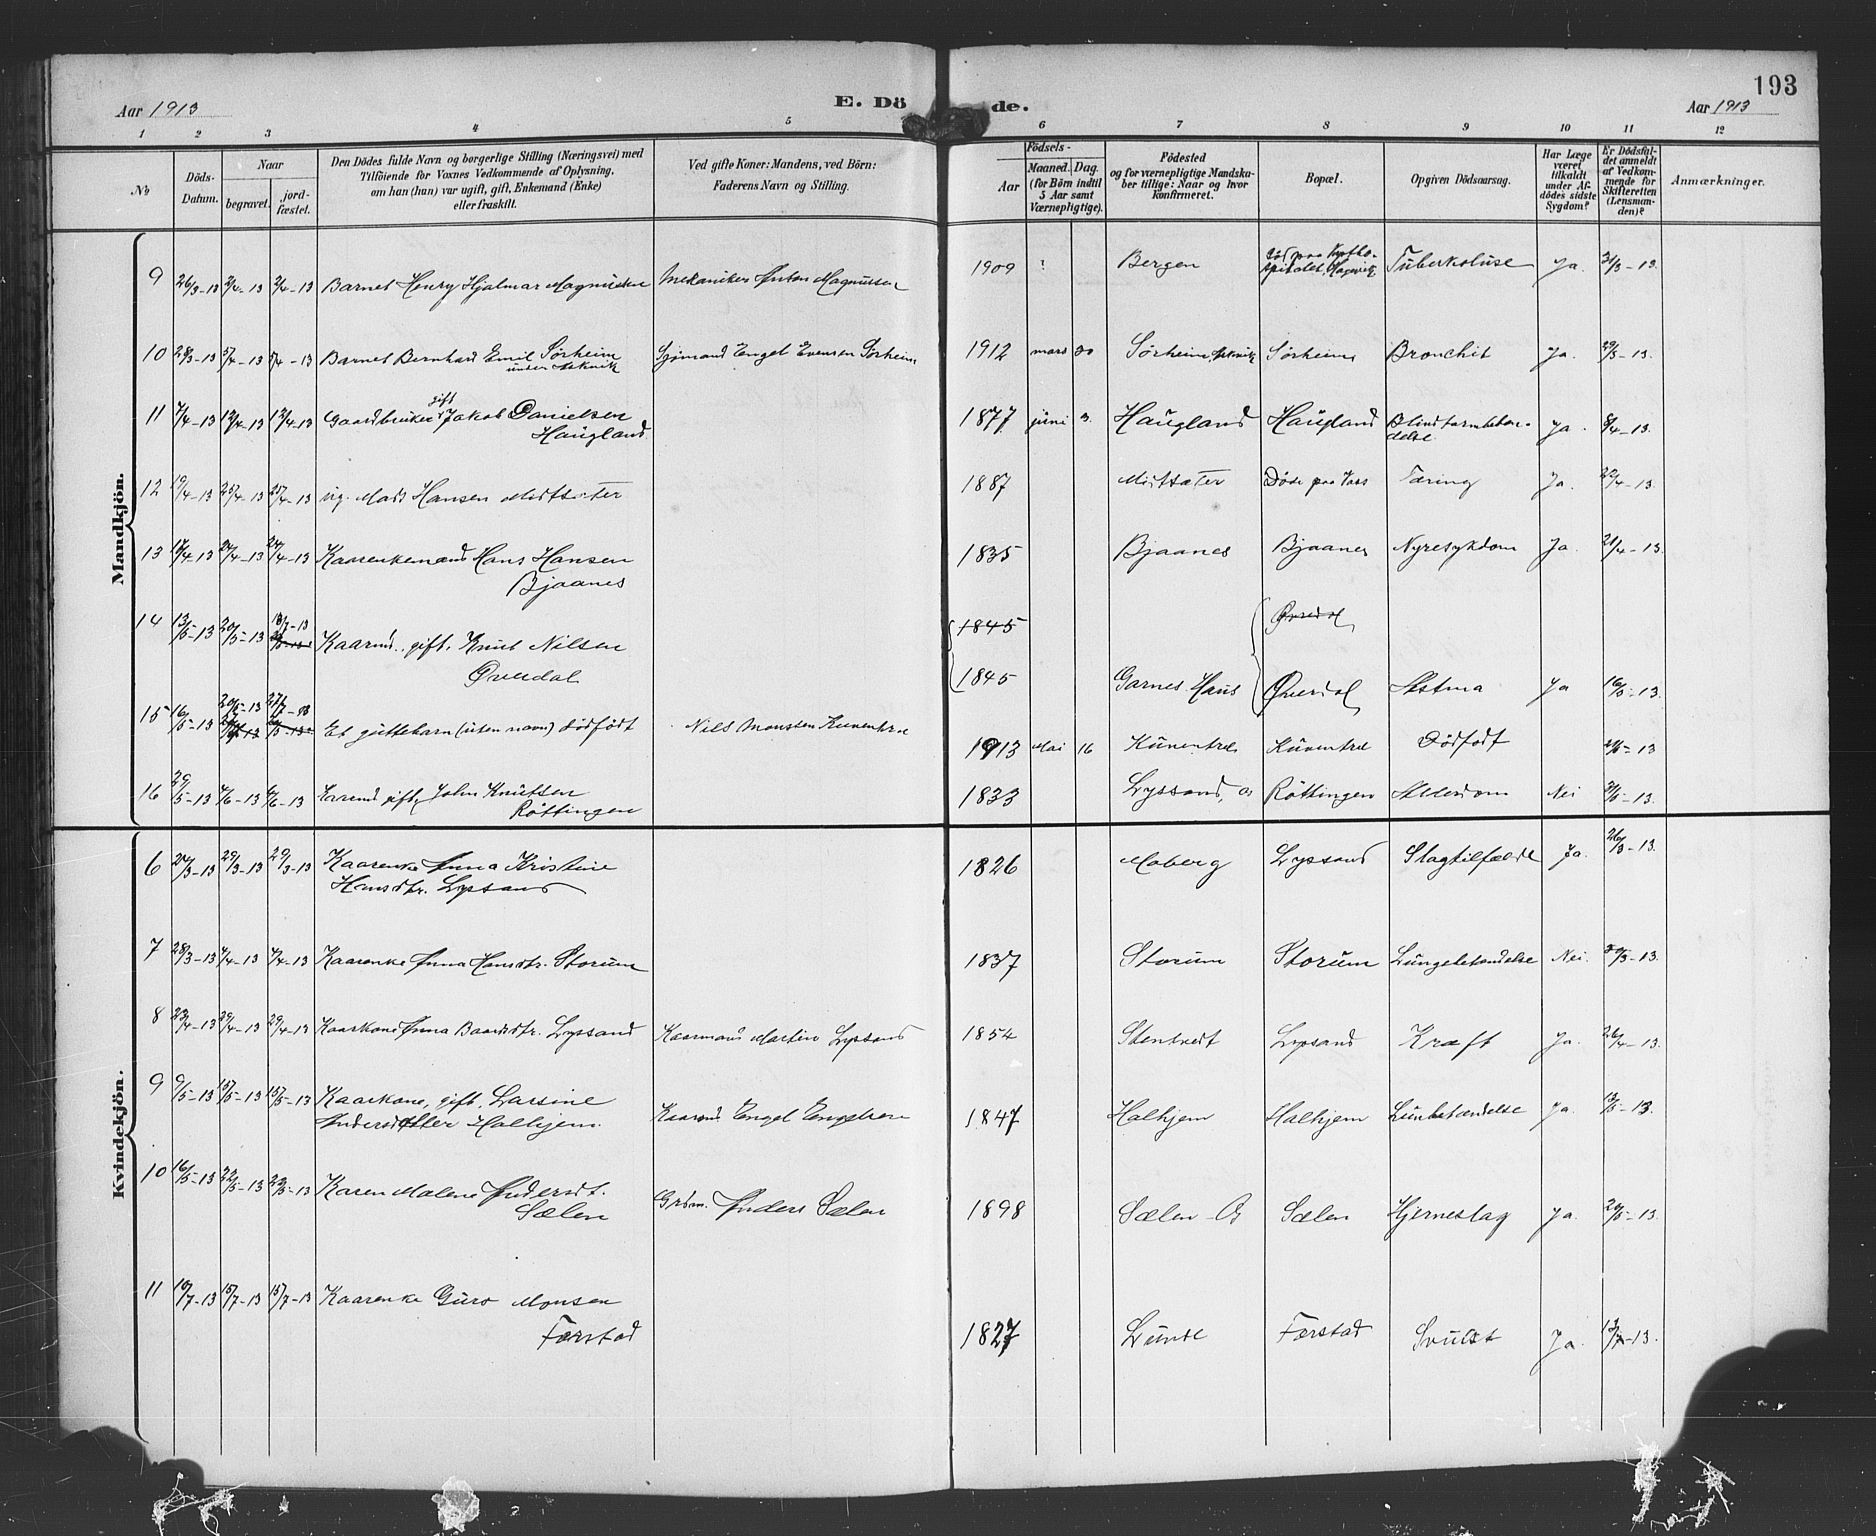 193
Aar 1913
E. Dö
de.
Aar 1913
1 2 3 4 5 6 7 8 9 10 11 12
No
Döds-
Datum.
Naar
begravet.
jord-
fæstet.
Den Dödes fulde Navn og borgerlige Stilling (Næringsvei) med
Tilföiende for Voxnes Vedkommende af Oplysning,
om han (hun) var ugift, gift, Enkemand (Enke)
eller fraskilt.
Ved gifte Koner: Mandens, ved Börn:
Faderens Navn og Stilling.
Födsels-
Aar
Maaned. Dag.
(for Börn indtil
5 Aar samt
Værnepligtige).
Födested
og for værnepligtige Mandska-
ber tillige: Naar og hvor
konfirmeret.
Bopæl.
Opgiven Dödsaarsag.
Har Læge
været
tilkaldt
under Af-
dödes sidste
Sygdom?
Er Dödsfal-
det anmeldt
af Vedkom-
mende for
Skifteretten
(Lensman-
den)?
Anmærkninger.
Mandkjön.
9 26/3-13 2/4-13 2/4-13 Barnet Henry Hjalmar Magnussen Mekaniker Anton Magnussen 1909 ? Bergen Tuberkulose Ja. 31/3-13.
10 28/3-13 5/4-13 5/4-13 Barnet Bernhard Emil Sørheim Sjømand Engel Evensen Sørheim 1912 mars 30 Sørheim Sørheim Bronchit Ja. 29/3-13.
11 7/4-13 12/4-13 12/4-13 Gaardbruker gift Jakob Danielsen
Haugland 1877 juni 3. Haugland Haugland Blindtarmbeten-
delse Ja. 8/4-13.
12 19/4-13 25/4-13 25/4-13 ug. Mads Hansen Midtsæter 1887 Midtsæter Døde paa Voss Tæring Ja. 22/4-13.
13 18/4-13 24/4-13 24/4-13 Kaarenkemand Hans Hansen
Bjaanes 1835 Bjaanes Bjaanes Nyresykdom Ja. 21/4-13.
14 13/5-13 20/5-13 13/7-13 Kaarmd. gift. Knut Nilsen
Øvredal 1845 Øvredal
1845 Garnes Haus Øvredal Astma Ja 16/5-13.
15 16/5-13 20/5-13 27/7-13 Et guttebarn (uten navn) dødfødt Nils Monsen Kuventræ 1913 Mai 16 Kuventræ Kuventræ Dødfødt 20/5-13
16 29/5-13 4/6-13 4/6-13 Kaarmd gift, John Knutsen
Røttingen 1833 Lyssand, Os Røttingen Alderdom Nei 31/5-13.
Kvindekjön.
6 24/3-13 29/3-13 29/3-13 Kaarenke Anna Kristine
Hansdtr. Lyssand 1826 Moberg Lyssand Slagtilfælde Ja. 26/3-13.
7 28/3-13 4/4-13 4/4-13 Kaarenke Anna Hansdtr. Storum 1837 Storum Storum Lungebetændelse Nei. 31/3-13.
8 23/4-13 29/4-13 29/4-13 Kaarkone Anna Baardsdtr. Lyssand Kaarmand Martin Lyssand 1854 Stentvedt Lyssand Kræft Ja. 26/4-13.
9 9/5-13 15/5-13 15/5-13 Kaarkone, gift, Larsine
Andersdatter Halhjem. Kaarmd Engel Engelsen 1847 Halhjem Halhjem Lunbetændelse Ja. 13/5-13.
10 16/5-13 22/5-13 22/5-13 Karen Malene Andersdt.
Sælen Grdm. Anders Sælen 1898 Sælen Os Sælen Hjerneslag Ja. 20/5-13.
11 10/7-13 15/7-13 15/7-13 Kaarenke Guro Monsen
Færstad 1827 Lunde Færstad Svulst Ja. 12/7-13.